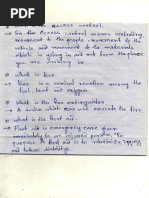 access control.
→ Sir, the Access control means controling
movement to the people, movement to the
vehicle and movement to the materials
which is going in and out from the place
you are working in
what is fire
→ Fire is a chemical reaction among the
fuel, heat and oxygen.
what is the fire extinguisher
→ A device which are use execute the fire.
what is the first aid.
→ First aid is emergency care given
immediately to an injured people. The
purpose of first aid is to
and future disability.